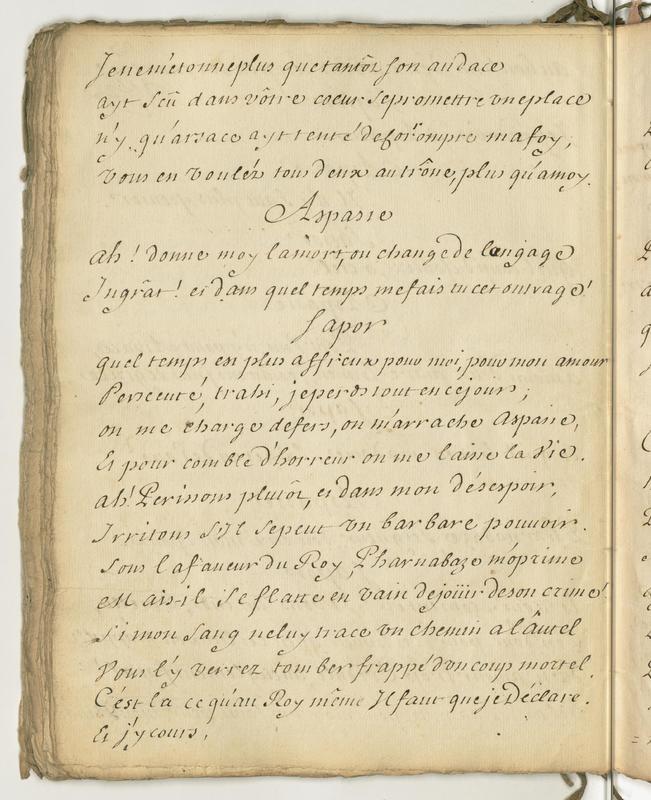 Je ne m'étonne plus que tantôt son audace
ayt sçû dans vôtre coeur se promettre une place
n'y qu'arsace ayt tenté de corompre ma foy,
Vous en vouléz tous deux au trône, plus qu'a moy.
Aspasie
ah! donne moy la mort, ou change de langage
Ingrat! et dans quel temps me fais tu cet outrage!
Sapor
quel temps est plus affreux pour moi, pour mon amour
Persecuté, trahi, je perds tout en ce jour;
on me charge de fers, on m'arrache Aspasie,
Et pour comble d'horreur on me laisse la Vie.
ah! Perissons plutôt, et dans mon désespoir,
Irritons s'Il se peut un barbare pouvoir.
Sous la faueur du Roy Pharnabaze m'oprime
mais il se flatte en vain de joüir de son crime!
Si mon Sang ne luy trace un chemin a l'âutel
Vous l'y verrez tomber frappé d'un coup mortel.
C'est la ce qu'au Roy même Il faut que je Déclare.
Et j'y cours,